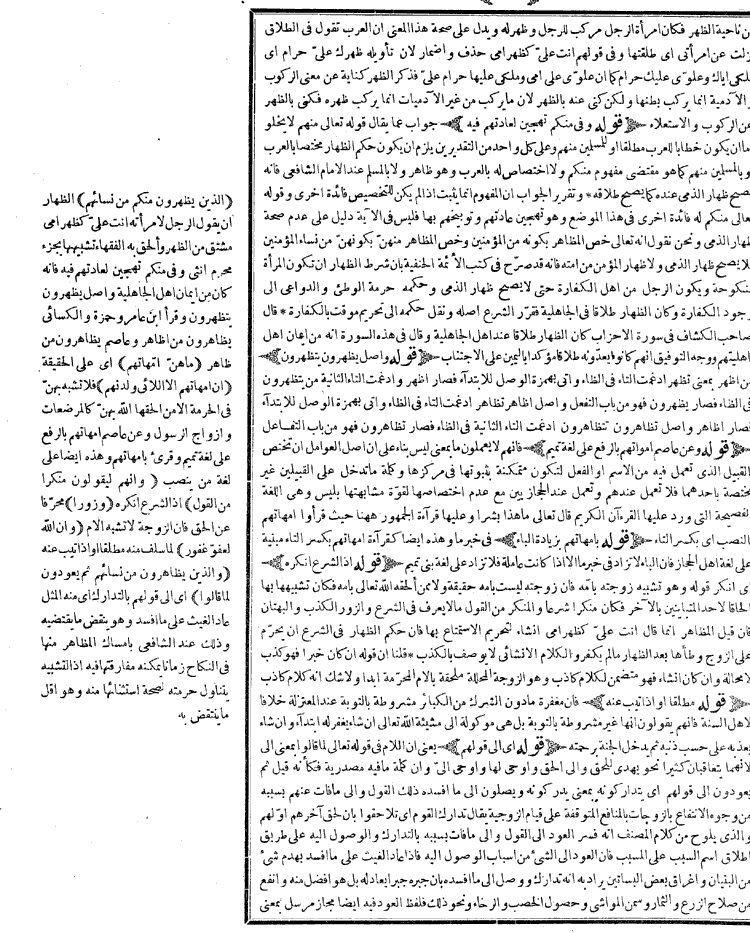 من ناحية الظهر فكان امرأة الرجل مركب للرجل وظهر له ويدل على صحة هذا المعنى ان العرب تقول فى الطلاق
نزلت عن امرأتى اى طلقتها وفى قولهم انت علىّ كظهر امى حذف واضمار لان تأويله ظهرك علىّ حرام اى
ملكى اياك وعلوى عليك حرام كما ان علوى على امى وملكى عليها حرام علىّ فذكر الظهر كناية عن معنى الركوب
والآدمية انما يركب بطنها ولكن كنى عنه بالظهر لان ما يركب من غير الآدميات انما يركب ظهره فكنى بالظهر
عن الركوب والاستعلاء ﴿قوله وفى منكم تهجين لعادتهم فيه﴾ جواب عما يقال قوله تعالى منهم لا يخلو
اما ان يكون خطابا للعرب مطلقا او للمسلمين منهم وعلى كل واحد من التقديرين يلزم ان يكون حكم الظهار مختصا بالعرب
وبالمسلمين منهم كما هو مقتضى مفهوم منكم ولا اختصاص له بالعرب وهو ظاهر ولا بالمسلم عند الامام الشافعى فانه
يصح ظهار الذمى عنده كما يصح طلاقه * وتقرير الجواب ان المفهوم انما يثبت اذا لم يكن للتخصيص فائدة اخرى وقوله
تعالى منكم له فائدة اخرى فى هذا الموضع وهو تهجين عادتهم وتوبيخهم بها فليس فى الآية دليل على عدم صحة
ظهار الذمى ونحن نقول انه تعالى خص المظاهر بكونه من المؤمنين وخص المظاهر منهنّ بكونهنّ من نساء المؤمنين
فلا يصح ظهار الذمى ولا ظهار المؤمن من امته فانه قد صرّح فى كتب الأئمة الحنفية بان شرط الظهار ان تكون المرأة
منكوحة ويكون الرجل من اهل الكفارة حتى لا يصح ظهار الذمى وحكمه حرمة الوطئ والدواعى الى
وجود الكفارة وكان الظهار طلاقا فى الجاهلية فقرّر الشرع اصله ونقل حكمه الى تحريم موقت بالكفارة * قال
صاحب الكشاف فى سورة الاحزاب كان الظهار طلاقا عند اهل الجاهلية وقال فى هذه السورة انه من ايمان اهل
جاهليتهم ووجه التوفيق انهم كانوا يعدّونه طلاقا مؤكدا باليمين على الاجتناب ﴿قوله واصل يظهرون يتظهرون﴾
من اظهر بمعنى تظهر ادغمت التاء فى الظاء واتى بهمزة الوصل للابتداء فصار اظهر وادغمت التاء الثانية من يتظهرون
فى الظاء فصار يظهرون فهو من باب التفعل واصل اظاهر تظاهر ادغمت التاء فى الظاء واتى بهمزة الوصل للابتداء
فصار اظاهر واصل تظاهرون تتظاهرون ادغمت التاء الثانية فى الظاء فصار تظاهرون فهو من باب التفاعل
﴿قوله وعن عاصم امهاتهم بالرفع على لغة تميم﴾ فانهم لا يعملون ما بمعنى ليس بناء على ان اصل العوامل ان تختص
القبيل الذى تعمل فيه من الاسم او الفعل لتكون متمكنة بثبوتها فى مركزها وكلمة ما تدخل على القبيلين غير
مختصة باحدهما فلا تعمل عندهم وتعمل عند الحجازيين مع عدم اختصاصها لقوّة مشابهتها بليس وهى اللغة
الفصيحة التى ورد عليها القرءآن الكريم قال تعالى ما هذا بشرا وعليها قرآءة الجمهور ههنا حيث قرأوا امهاتهم
بالنصب اى بكسر التاء ﴿قوله بامهاتهم بزيادة الباء﴾ فى خبر ما وهذه ايضا كقرآءة امهاتهم بكسر التاء مبنية
على لغة اهل الحجاز فان الباء لا تزاد فى خبر ما الا اذا كانت عاملة فلا تزاد على لغة بنى تميم ﴿قوله اذ الشرع انكره﴾
اى انكر قوله وهو تشبيه زوجته بامّه فان زوجته ليست بامه حقيقة ولا ممن ألحقه الله تعالى بامه فكان تشبيهها بها
الحاقا لاحد المتباينين بالآخر فكان منكرا شرعا والمنكر من القول ما لا يعرف فى الشرع والزور الكذب والبهتان
فان قيل المظاهر انما قال انت علىّ كظهر امى انشاء لتحريم الاستمتاع بها فان حكم الظهار فى الشرع ان يحرّم
على الزوج وطأها بعد الظهار مالم يكفر والكلام الانشائى لا يوصف بالكذب * قلنا ان قوله ان كان خبرا فهو كذب
لا محالة وان كان انشاء فهو متضمن لكلام كاذب وهو الزوجة المحللة ملحقة بالام المحرّمة ابدا ولا شك انه كلام كاذب
﴿قوله مطلقا او اذا تيب عنه﴾ فان مغفرة مادون الشرك من الكبائر مشروطة بالتوبة عند المعتزلة خلافا
لاهل السنة فانهم يقولون انها غير مشروطة بالتوبة بل هى موكولة الى مشيئة الله تعالى ان شاء يغفر له ابتدآء وان شاء
يعذبه على حسب ذنبه ثم يدخل الجنة برحمته ﴿قوله اى الى قولهم﴾ يعنى ان اللام فى قوله تعالى لما قالوا بمعنى الى
لانهما يتعاقبان كثيرا نحو يهدى للحق والى الحق واوحى لها واوحى الىّ وان كلمة ما فيه مصدرية فكأنه قيل ثم
يعودون الى قولهم اى يتداركونه بمعنى يدركونه ويصلون الى ما افسده ذلك القول والى مافات عنهم بسببه
من وجوه الانتفاع بالزوجات بالمنافع المتوقفة على قيام الزوجية يقال تدارك القوم اى تلاحقوا بان لحق آخرهم اوّلهم
والذى يلوح من كلام المصنف انه فسر العود الى القول والى مافات بسببه بالتدارك والوصول اليه على طريق
اطلاق اسم السبب على المسبب فان العود الى الشئ من اسباب الوصول اليه فاذا عاد الغيث على ما افسد بهدم شئ
من البنيان واغراق بعض البساتين يراد به انه تدارك ووصل الى ما افسده بان جبره جبرا يعادله بل هو افضل منه وانفع
من صلاح الزرع والثمار وسمن المواشى وحصول الخصب والرخاء ونحو ذلك فلفظ العود فيه ايضا مجاز مرسل بمعنى
(الذين يظهرون منكم من نسائهم) الظهار
ان يقول الرجل لامرأته انت علىّ كظهر امى
مشتق من الظهر وألحق به الفقهاء تشبيهها بجزء
محرم انثى وفى منكم تهجين لعادتهم فيه فانه
كان من ايمان اهل الجاهلية واصل يظهرون
يتظهرون وقرأ ابن عامر وحمزة والكسائى
يظاهرون من اظاهر وعاصم يظاهرون من
ظاهر (ماهنّ امهاتهم) اى على الحقيقة
(ان امهاتهم الا اللائى ولدنهم) فلا تشبه بهنّ
فى الحرمة الا من الحقها الله بهنّ كالمرضعات
وازواج الرسول وعن عاصم امهاتهم بالرفع
على لغة تميم وقرئ بامهاتهم وهذه ايضا على
لغة من ينصب (وانهم ليقولون منكرا
من القول) اذ الشرع انكره (وزورا) محرّفا
عن الحق فان الزوجة لا تشبه الام (وان الله
لعفوّ غفور) لما سلف منه مطلقا او اذا تيب عنه
(والذين يظاهرون من نسائهم ثم يعودون
لما قالوا) اى الى قولهم بالتدارك ومنه المثل
عاد الغيث على ما افسد وهو بنقض ما يقتضيه
وذلك عند الشافعى بامساك المظاهر منها
فى النكاح زمانا يمكنه مفارقتها فيه اذ التشبيه
يتناول حرمته لصحة استثنائها منه وهو اقل
ما ينتقض به